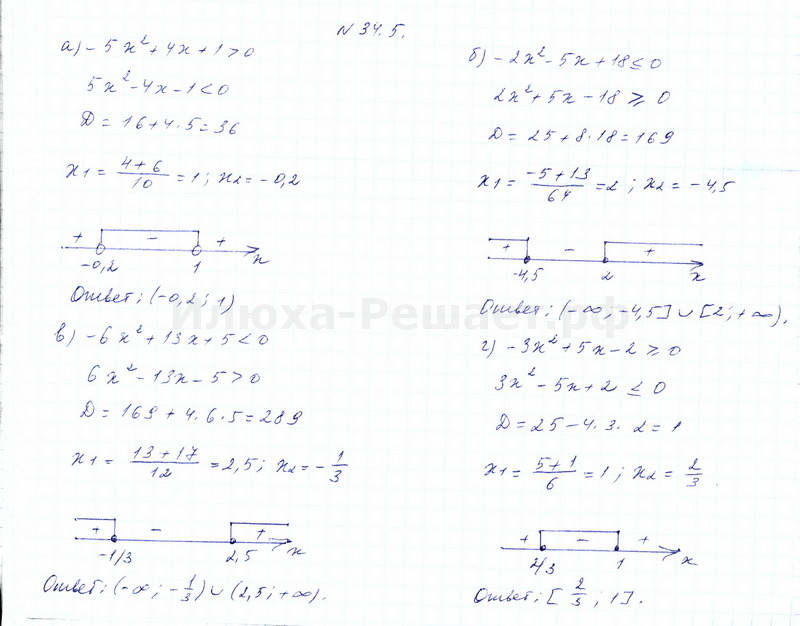 N 34.5.
а) -5x²+4x+1>0
5x²-4x-1<0
D=16+4·5=36
x1=\frac{4+6}{10}=1; x2=-0,2
+ - +
-0,2 1 x
Ответ: (-0,2; 1)
б) -2x²-5x+18≤0
2x²+5x-18≥0
D=25+8·18=169
x1=\frac{-5+13}{64}=2; x2=-4,5
+ - +
-4,5 2 x
Ответ: (-∞; -4,5]∪[2; +∞).
илюха-Решает.рф
в) -6x²+13x+5<0
6x²-13x-5>0
D=169+4.6.5=289
x1=\frac{13+17}{12}=2,5; x2=-\frac{1}{3}
+ - +
-1/3 2,5 x
Ответ: (-∞; -\frac{1}{3})∪(2,5; +∞).
г) -3x²+5x-2≥0
3x²-5x+2≤0
D=25-4·3·2=1
x1=\frac{5+1}{6}=1; x2=\frac{2}{3}.
+ - +
2/3 1 x
Ответ: [\frac{2}{3}; 1].